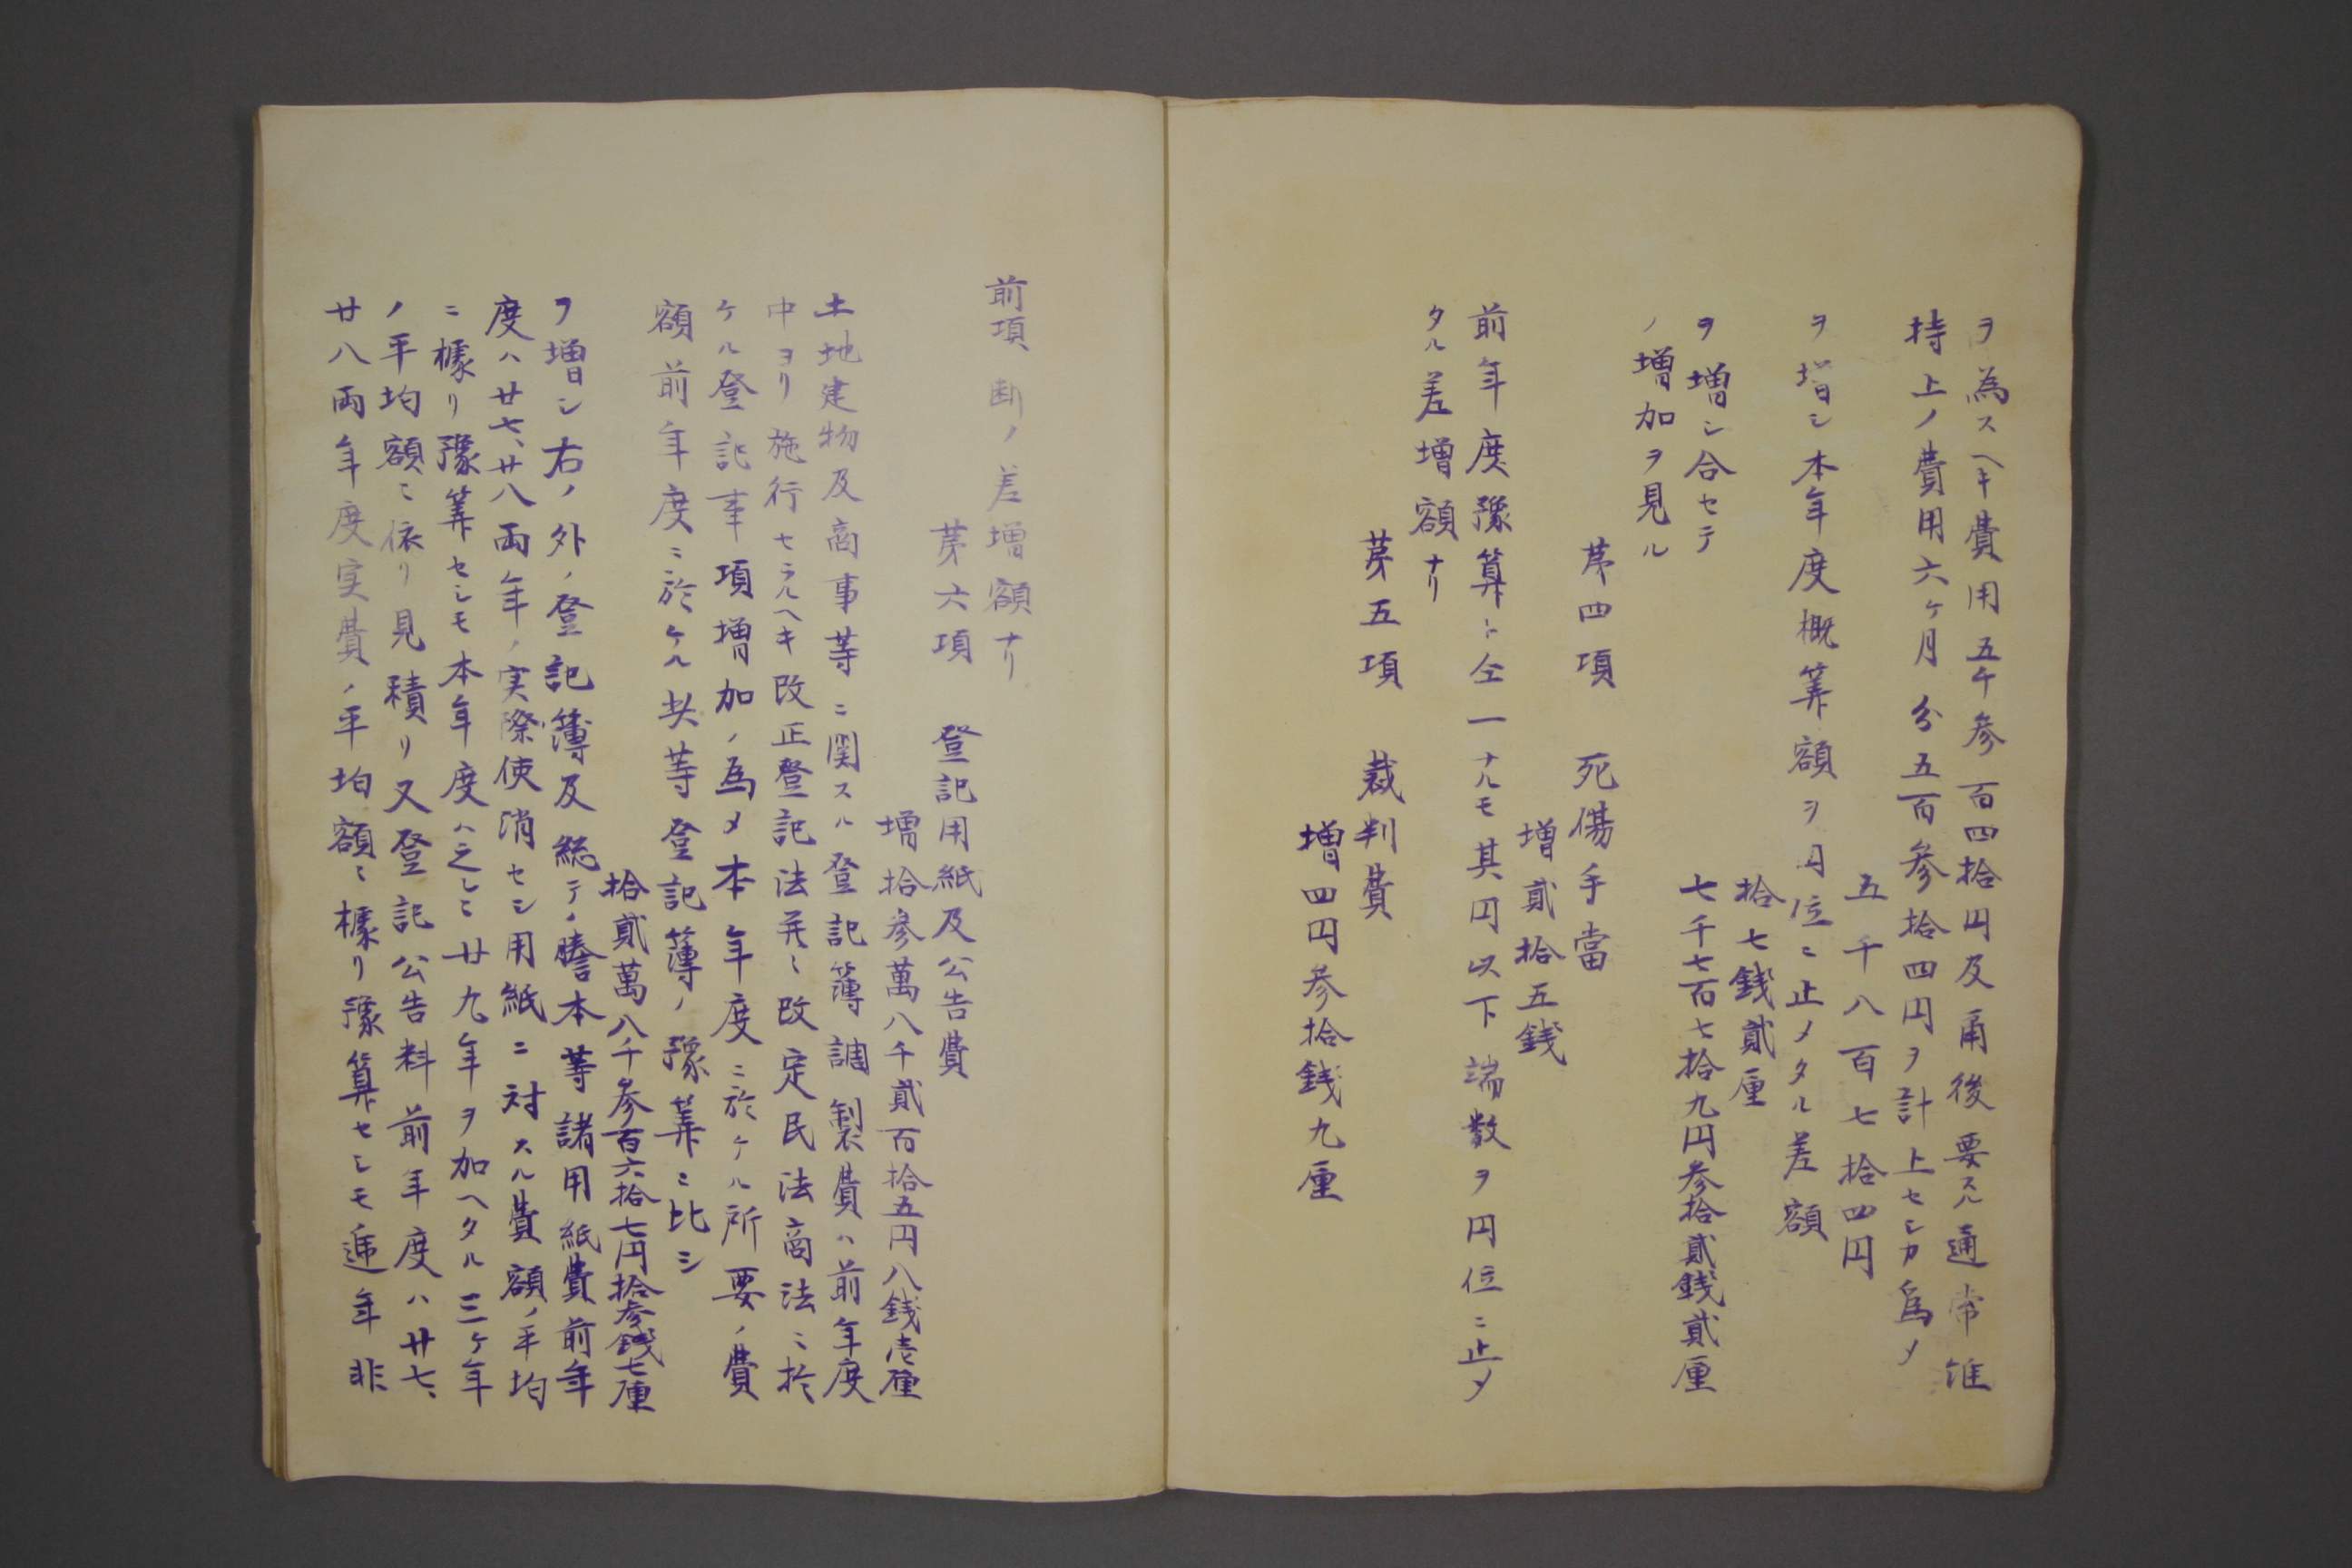 ヲ為スヘキ費用五千参百四拾円及甬後要スル通常維
持上ノ費用六ケ月分五百参拾四円ヲ計上セシカ為メ
五千八百七拾四円
ヲ増シ本年度概筭額ヲ円位ニ止メタル差額
拾七銭貳厘
ヲ増シ合セテ
七千七百七拾九円参拾貳銭貳厘
ノ増加ヲ見ル
苐四項 死傷手當
増貳拾五銭
前年度豫算ト仝一ナルモ其円以下端数ヲ円位ニ止メ
タル差増額ナリ
苐五項 裁判費
増四円参拾銭九厘
前項断ノ差増額ナリ
苐六項 登記用紙及公告費
増拾参萬八千貳百拾五円八銭壱厘
土地建物及商事等ニ関スル登記簿調製費ハ前年度
中ヨリ施行セラルヘキ改正登記法并ニ改定民法商法ニ於
ケル登記事項増加ノ為メ本年度ニ於ケル所要ノ費
額前年度ニ於ケル共等登記簿ノ豫筭ニ比シ
拾貳萬八千参百六拾七円拾参銭七厘
ヲ増シ右ノ外ノ登記簿及総テノ謄本等諸用紙費前年
度ハ廿七、廿八両年ノ実際使消セシ用紙ニ対スル費額ノ平均
ニ據リ豫筭セシモ本年度ハ之レニ廿九年ヲ加ヘタル三ケ年
ノ平均額ニ依リ見積リ又登記公告料前年度ハ廿七、
廿八両年度実費ノ平均額ニ據リ豫算セシモ逓年非